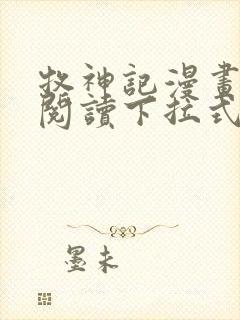 牧神記漫畫
閱讀下拉式
墨未